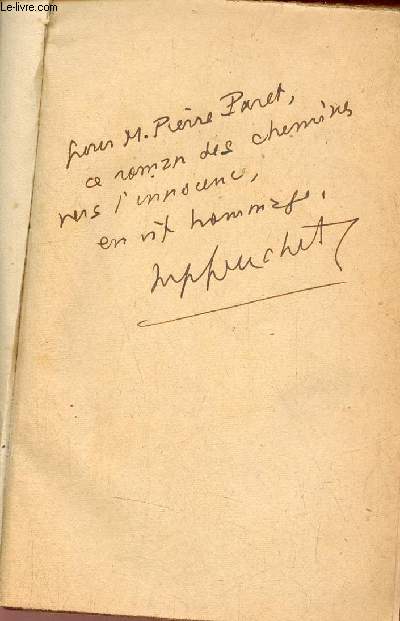 Le-livre.com
pour M. Pierre Paret,
ce roman des chemins
vers l'innocence,
en vif hommage.